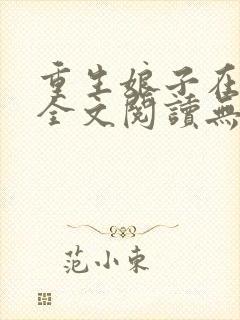 重生娘子在
全文閱讀無
范小東